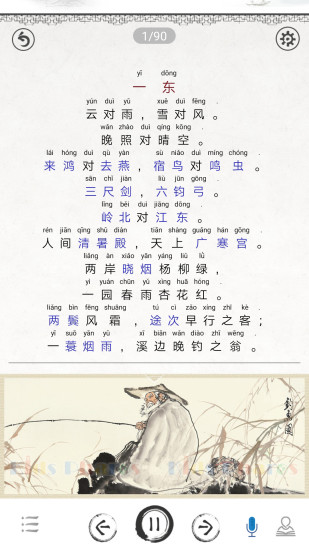 1/90
yī dōng
一 东
yún duì yǔ , xuě duì fēng .
云 对 雨 , 雪 对 风 。
wǎn zhào duì qíng kōng .
晚 照 对 晴 空 。
lái hóng duì qù yàn , sù niǎo duì míng chóng .
来 鸿 对 去 燕 , 宿 鸟 对 鸣 虫 。
sān chǐ jiàn , liù jūn gōng .
三 尺 剑 , 六 钧 弓 。
lǐng běi duì jiāng dōng .
岭 北 对 江 东 。
rén jiān qīng shǔ diàn , tiān shàng guǎng hán gōng .
人 间 清 暑 殿 , 天 上 广 寒 宫 。
liǎng àn xiǎo yān yáng liǔ lǜ ,
两 岸 晓 烟 杨 柳 绿 ,
yì yuán chūn yǔ xìng huā hóng .
一 园 春 雨 杏 花 红 。
liǎng bìn fēng shuāng , tú cì zǎo xíng zhī kè .
两 鬓 风 霜 , 途 次 早 行 之 客 ;
yì suō yān yǔ , xī biān wǎn diào zhī wēng .
一 蓑 烟 雨 , 溪 边 晚 钓 之 翁 。